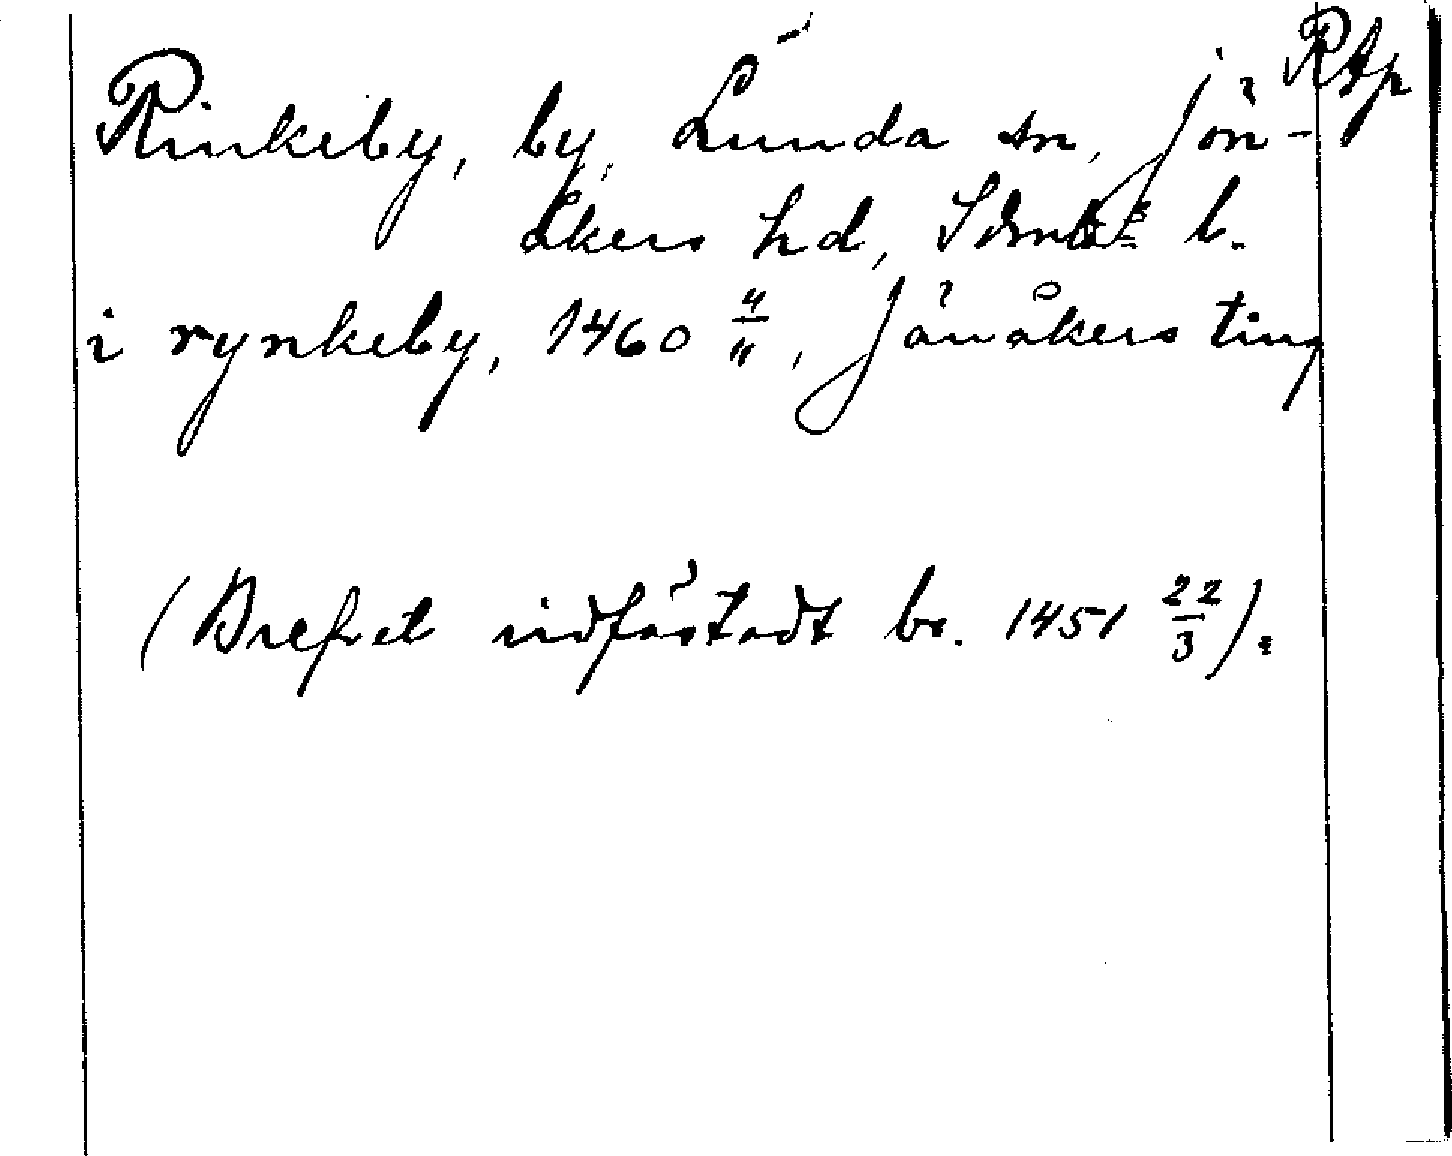 RAp
Rinkeby, by, Lunda sn, Jön-
åkers hd, Sdml. l.
i rynkeby, 1460 4/11, Jönåkers ting
(Brefvet vidfästadt br. 1451 22/3).